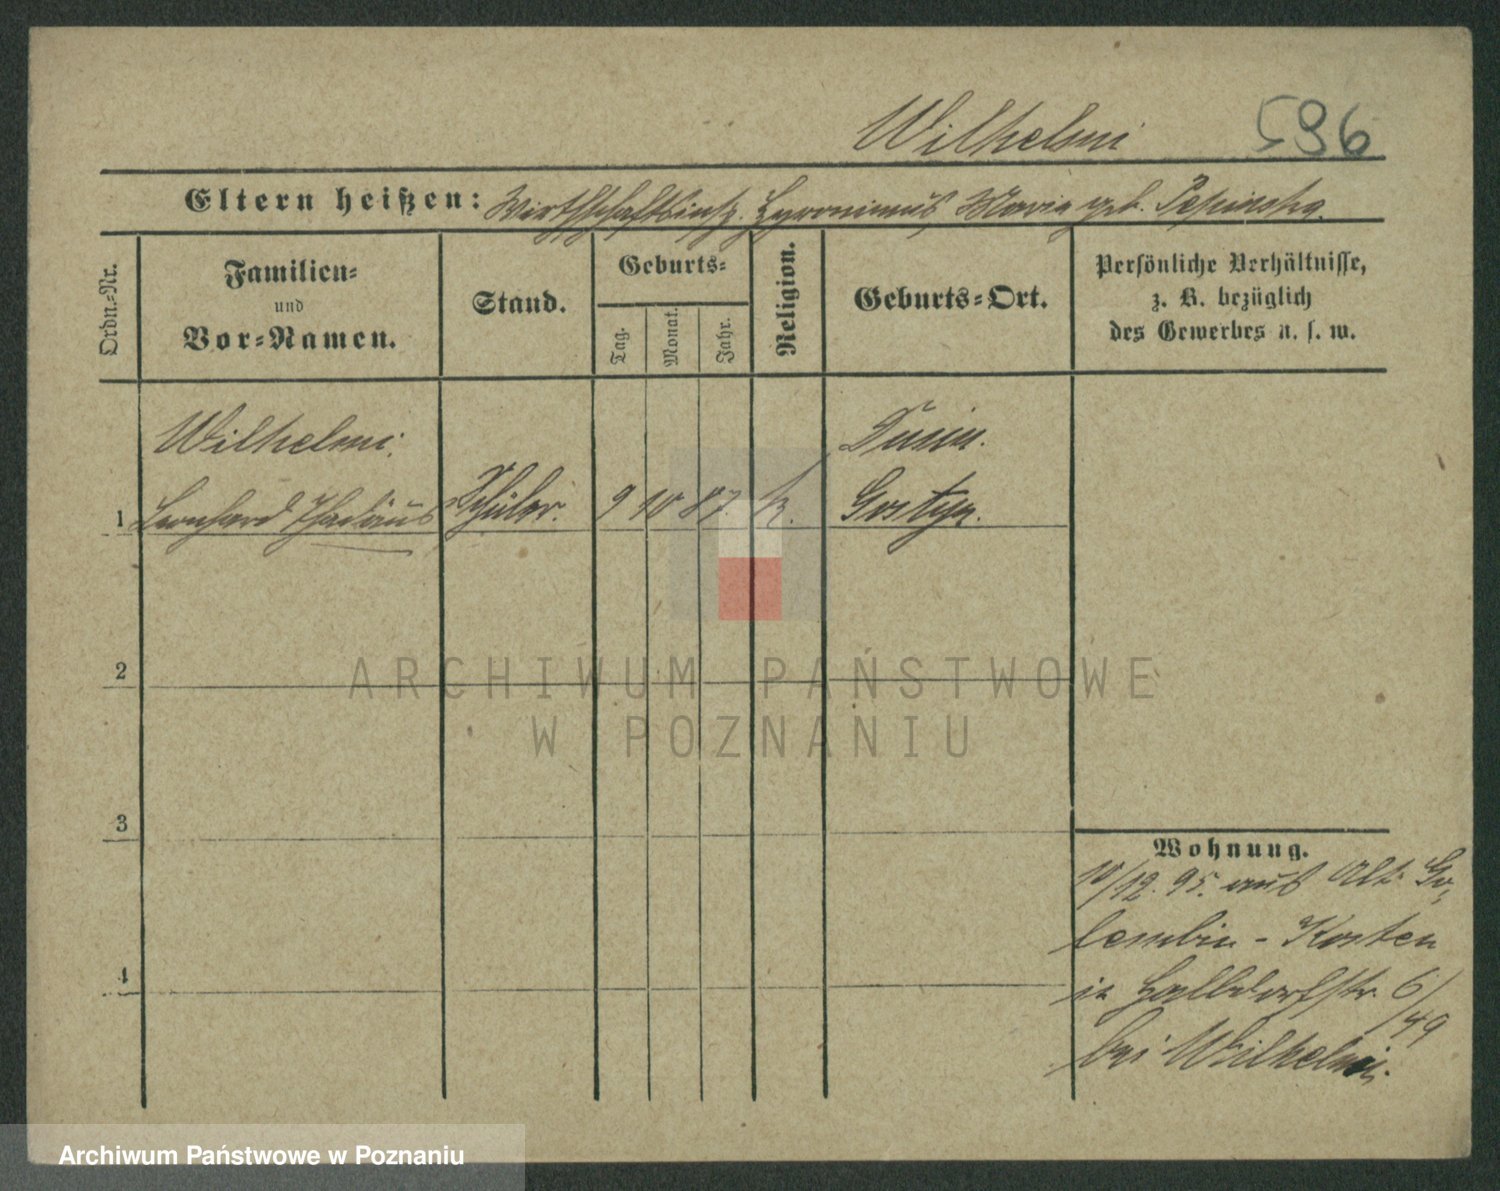 Wilhelmi 596
Eltern heißen: Wirthschaftsinsp. Hyronimus, Marie geb.
Ordn.-Nr.
Familien-
und
Vor-Namen.
Stand.
Geburts-
Tag.
Monat.
Jahr.
Religion.
Geburts-Ort.
Persönliche Verhältnisse,
z. B. bezüglich
des Gewerbes u. s. w.
Wilhelmi, Dusin.
1 Leonhard Thadäus Schüler. 9 10 87. k. Gostyn.
2
3
4
Wohnung.
10/12. 95. aus Alt Go-
lembin - Kosten
in Halldorfstr. 6/
49
bei Wilhelmi.
ARCHIWUM PAŃSTWOWE
W POZNANIU
Archiwum Państwowe w Poznaniu